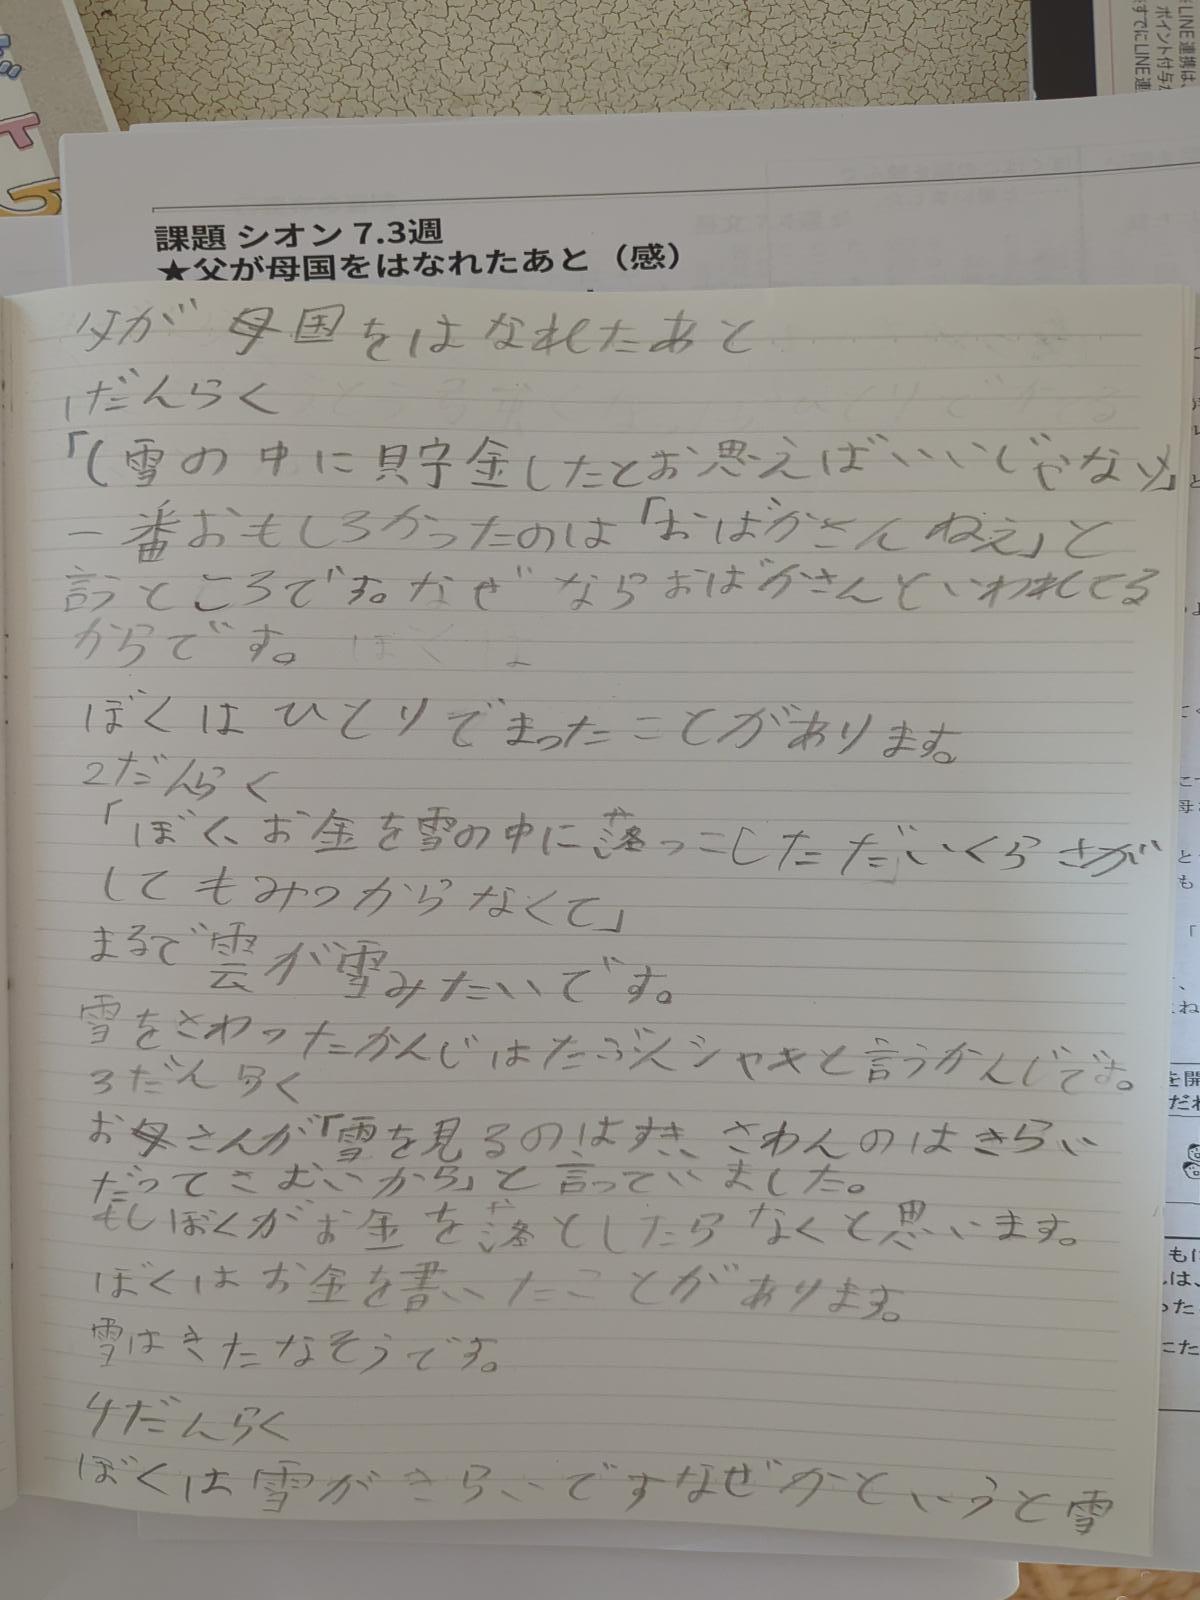 課題 シオン 7.3週
★父が母国をはなれたあと（感）
父が母国をはなれたあと
1だんらく
「(雪の中に貯金したとお思えばいいじゃない」
一番おもしろかったのは「おばかさんねえ」と
言うところです。なぜならおばかさんといわれてる
からです。
ぼくはひとりでまったことがあります。
2だんらく
「ぼく、お金を雪の中に落っこしただいくらさが
してもみつからなくて」
まるで雲が雪みたいです。
雪をさわったかんじはたぶんシャキと言うかんじです。
3だんらく
お母さんが「雪を見るのはすき、さわんのはきらい
だってさむいから」と言っていました。
もしぼくがお金を落としたらなくと思います。
ぼくはお金を書いたことがあります。
雪はきたなそうです。
4だんらく
ぼくは雪がきらいですなぜかというと雪